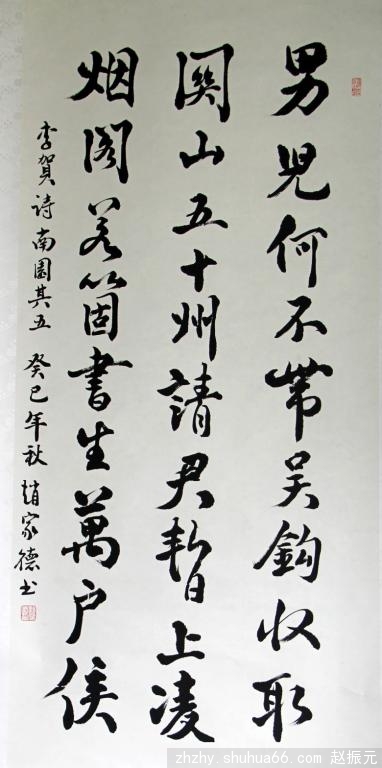 男兒何不帶吴鈎收取
關山五十州請君暫上凌
烟閣若箇書生萬户侯
李賀詩南園其五 癸巳年秋 趙家德书
zhzhy.shuhua66.com 赵振元